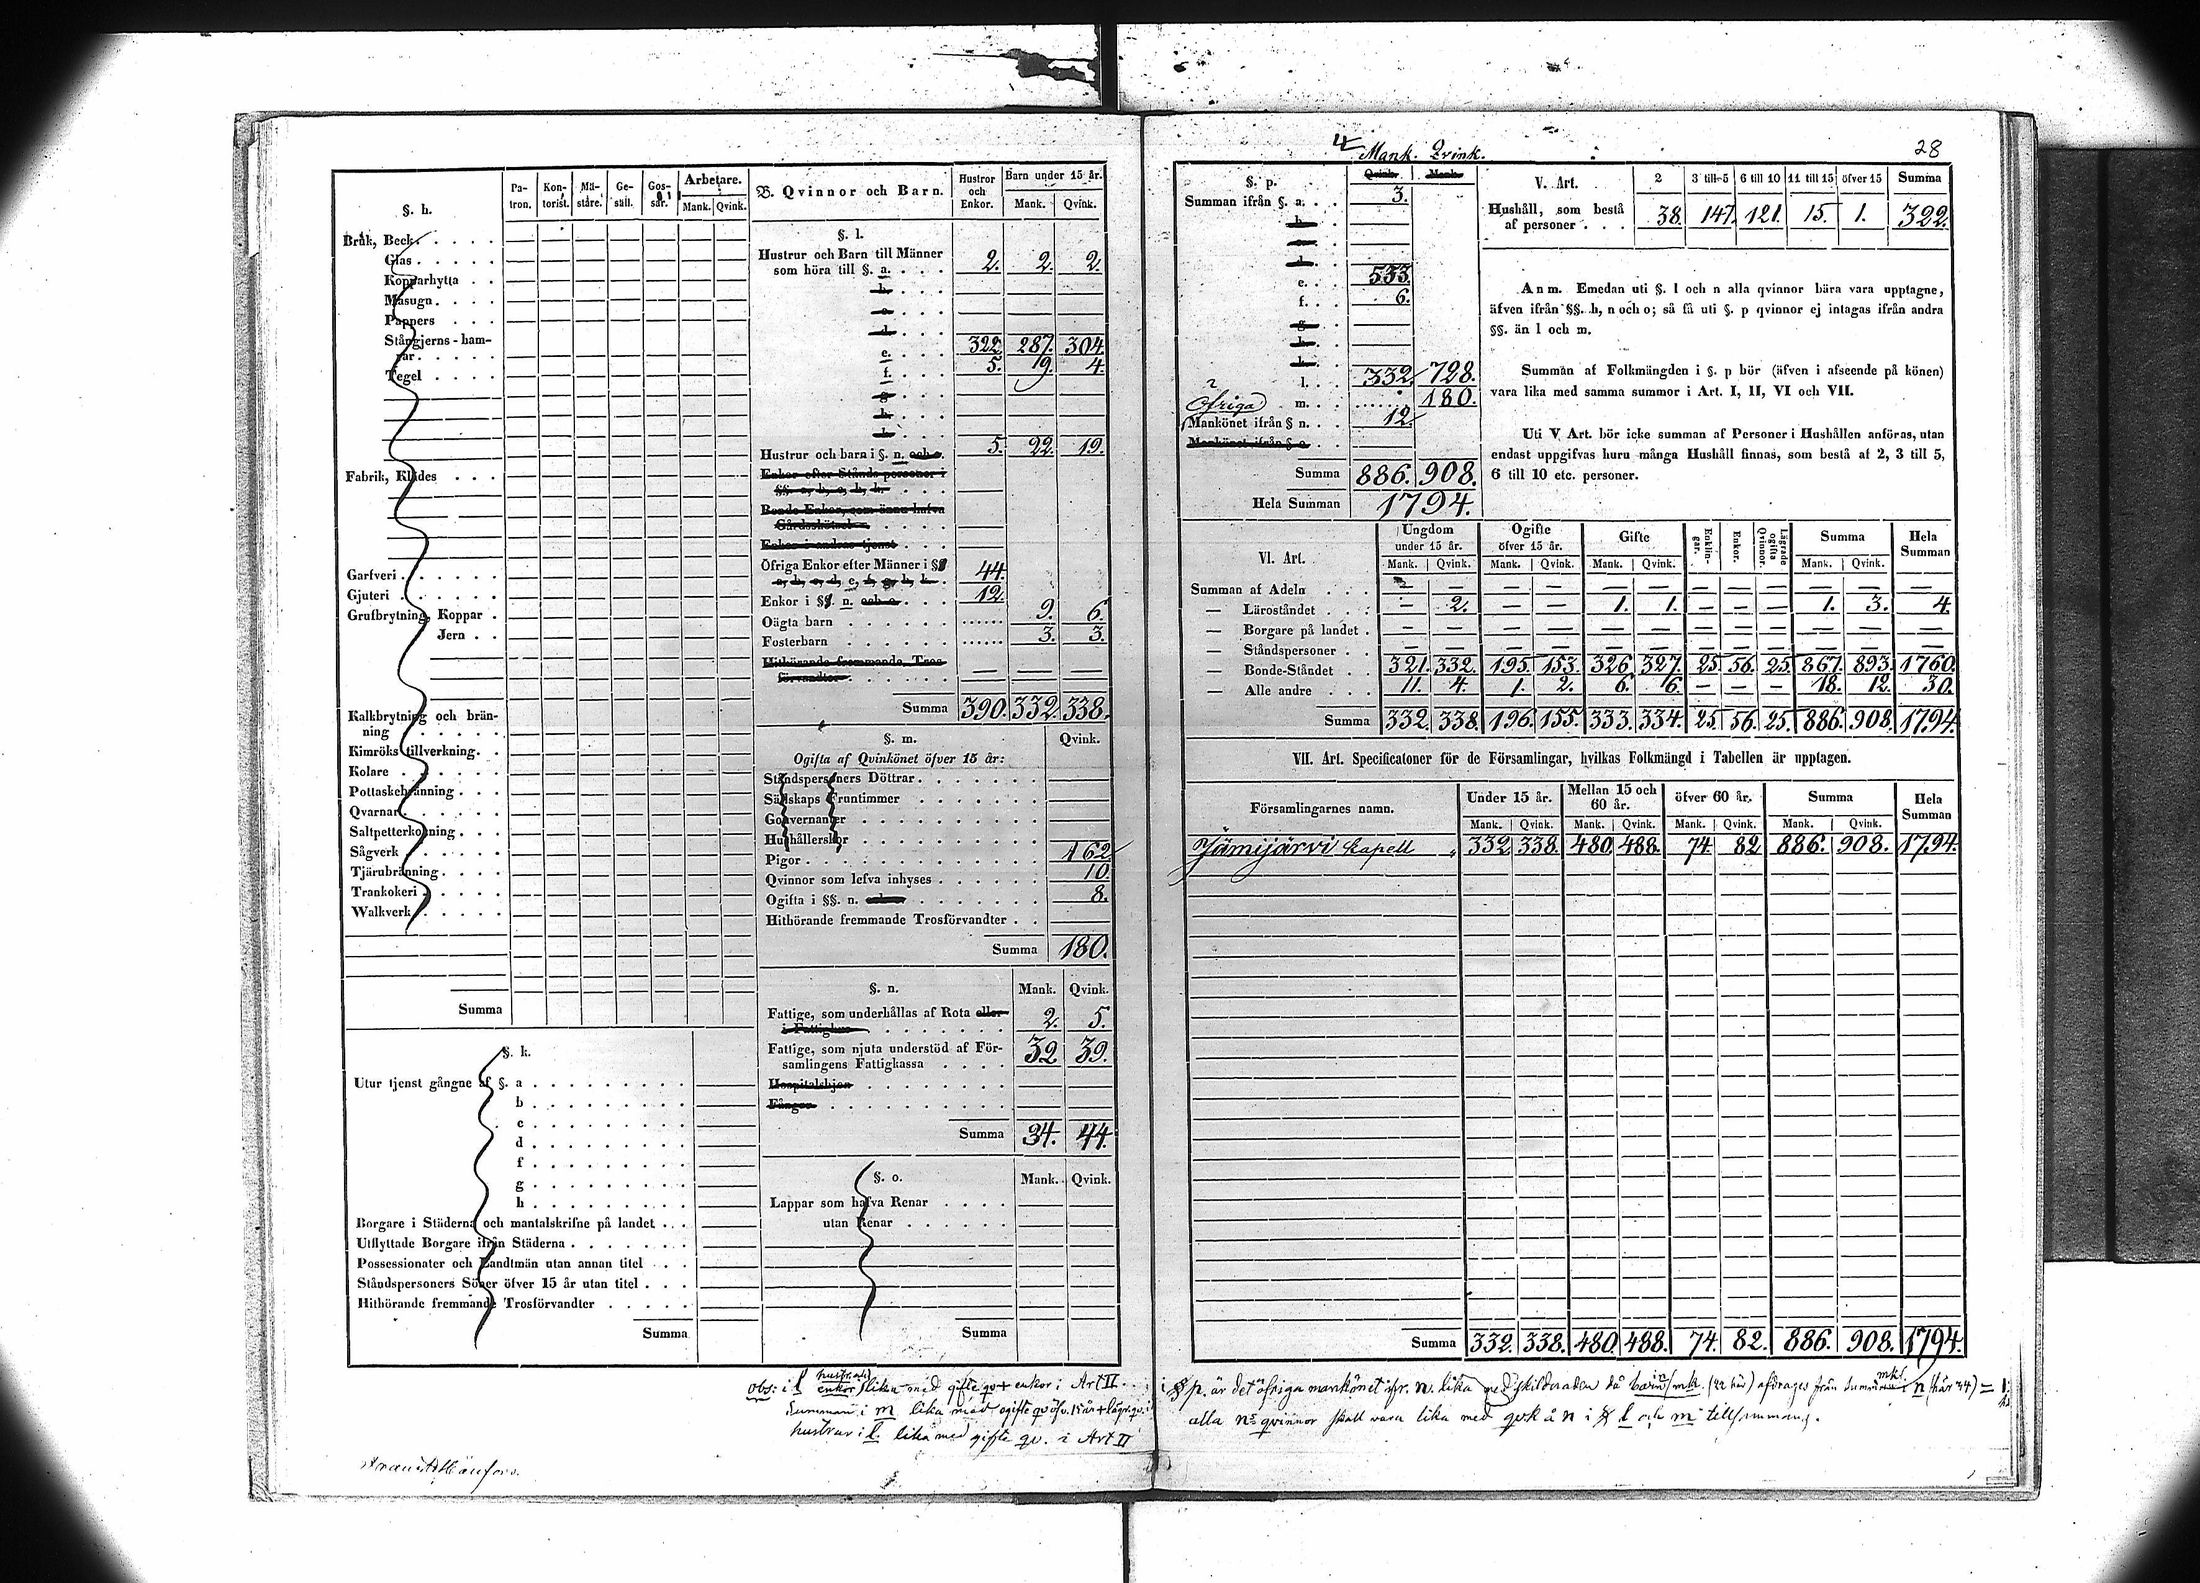 §. h.
Pa-
tron.
Kon-
torist.
Mä-
stare.
Ge-
säll.
Gos-
sar.
Arbetare.
Mank. Qvink.
Bruk, Beck
Glas
Kopparhytta
Masugn
Pappers
Stångjerns-ham-
rar
Tegel
Fabrik, Klädes
Garfveri
Gjuteri
Grufbrytning, Koppar
Jern
Kalkbrytning och brän-
ning
Kimröks tillverkning
Kolare
Pottaskebränning
Qvarnar
Saltpetterkokning
Sågverk
Tjärubränning
Trankokeri
Walkverk
Summa
§. k.
Utur tjenst gångne af §. a
b
c
d
f
g
h
Borgare i Städerna och mantalskrifne på landet
Utflyttade Borgare ifrån Städerna
Possessionater och Landtmän utan annan titel
Ståndspersoners Söner öfver 15 år utan titel
Hithörande fremmande Trosförvandter
Summa
B. Qvinnor och Barn.
Hustror
och
Enkor.
Barn under 15 år.
Mank. Qvink.
§. l.
Hustrur och Barn till Männer
som höra till §. a. 2. 2. 2.
b.
c.
d.
e. 322. 287. 304.
f. 5. 19. 4.
g.
h.
k.
Hustrur och barn i §. n. och o. 5. 22. 19.
Enkor efter Stånds personer i
§§. a, b, c, h, k.
Bonde Enkor, som ännu hafva
Gårdsskötseln
Enkor i andras tjenst
Öfriga Enkor efter Männer i §§
a, b, c, d, e, f, g, h, k. 44.
Enkor i §§. n. och o 12.
Oägta barn 9. 6.
Fosterbarn 3. 3.
Hithörande fremmande Tros-
förvandter
Summa 390. 332. 338.
§. m. Qvink.
Ogifta af Qvinkönet öfver 15 år:
Ståndspersoners Döttrar
Sällskaps Fruntimmer
Gouvernanter
Hushållerskor
Pigor 162
Qvinnor som lefva inhyses 10.
Ogifta i §§. n. och o 8.
Hithörande fremmande Trosförvandter
Summa 180.
§. n. Mank. Qvink.
Fattige, som underhållas af Rota eller
i Fattighus 2. 5.
Fattige, som njuta understöd af För-
samlingens Fattigkassa 32 39.
Hospitalshjon
Fångar
Summa 34. 44.
§. o. Mank. Qvink.
Lappar som hafva Renar
utan Renar
Summa
obs: i l hustror och
enkor lika med gifte qv + enkor i Art II
Summan i m lika med ogifte qv öfv. 15 år + lägr. qv. i
hustrur i l. lika med gifte qv. i Art II
28
4 Mank. Qvink.
§. p. Qvink. Mank.
Summan ifrån §. a. 3.
b.
c.
d.
e. 533.
f. 6.
g.
h.
k.
l. 332. 728.
m. 180.
Öfriga
Mankönet ifrån § n. 12.
Mankönet ifrån § o.
Summa 886. 908.
Hela Summan 1794.
V. Art. 2 3 till 5 6 till 10 11 till 15 öfver 15 Summa
Hushåll, som bestå
af personer 38. 147. 121. 15. 1. 322.
Anm. Emedan uti §. l och n alla qvinnor böra vara upptagne,
äfven ifrån §§. h, n och o; så få uti §. p qvinnor ej intagas ifrån andra
§§. än l och m.
Summan af Folkmängden i §. p bör (äfven i afseende på könen)
vara lika med samma summor i Art. I, II, VI och VII.
Uti V Art. bör icke summan af Personer i Hushållen anföras, utan
endast uppgifvas huru många Hushåll finnas, som bestå af 2, 3 till 5,
6 till 10 etc. personer.
VI. Art.
Ungdom
under 15 år.
Ogifte
öfver 15 år.
Gifte
Enklin-
gar.
Enkor.
Lägrade
ogifta
Qvinnor.
Summa
Hela
Summan
Mank. Qvink. Mank. Qvink. Mank. Qvink. Mank. Qvink.
Summan af Adeln — — — — — — — — — — — —
— Läroståndet — 2. — — 1. 1. — — — 1. 3. 4.
— Borgare på landet — — — — — — — — — — — —
— Ståndspersoner — — — — — — — — — — — —
— Bonde-Ståndet 321. 332. 195. 153. 326. 327. 25. 56. 25. 867. 893. 1760.
— Alle andre 11. 4. 1. 2. 6. 6. — — — 18. 12. 30.
Summa 332. 338. 196. 155. 333. 334. 25. 56. 25. 886. 908. 1794.
VII. Art. Specificatoner för de Församlingar, hvilkas Folkmängd i Tabellen är upptagen.
Församlingarnes namn.
Under 15 år.
Mellan 15 och
60 år.
öfver 60 år.
Summa
Hela
Summan
Mank. Qvink. Mank. Qvink. Mank. Qvink. Mank. Qvink.
Jämijärvi kapell 332 338. 480. 488. 74. 82 886. 908. 1794.
Summa 332. 338. 480. 488. 74. 82. 886. 908. 1794.
i § p. är det öfriga mankönet ifr. n. lika med skilnaden då barnen mk. (22 här) afdrages från summan mk. i n (här 34) =
alla n:s qvinnor skall vara lika med qvk å n i § l och m tillsammans.